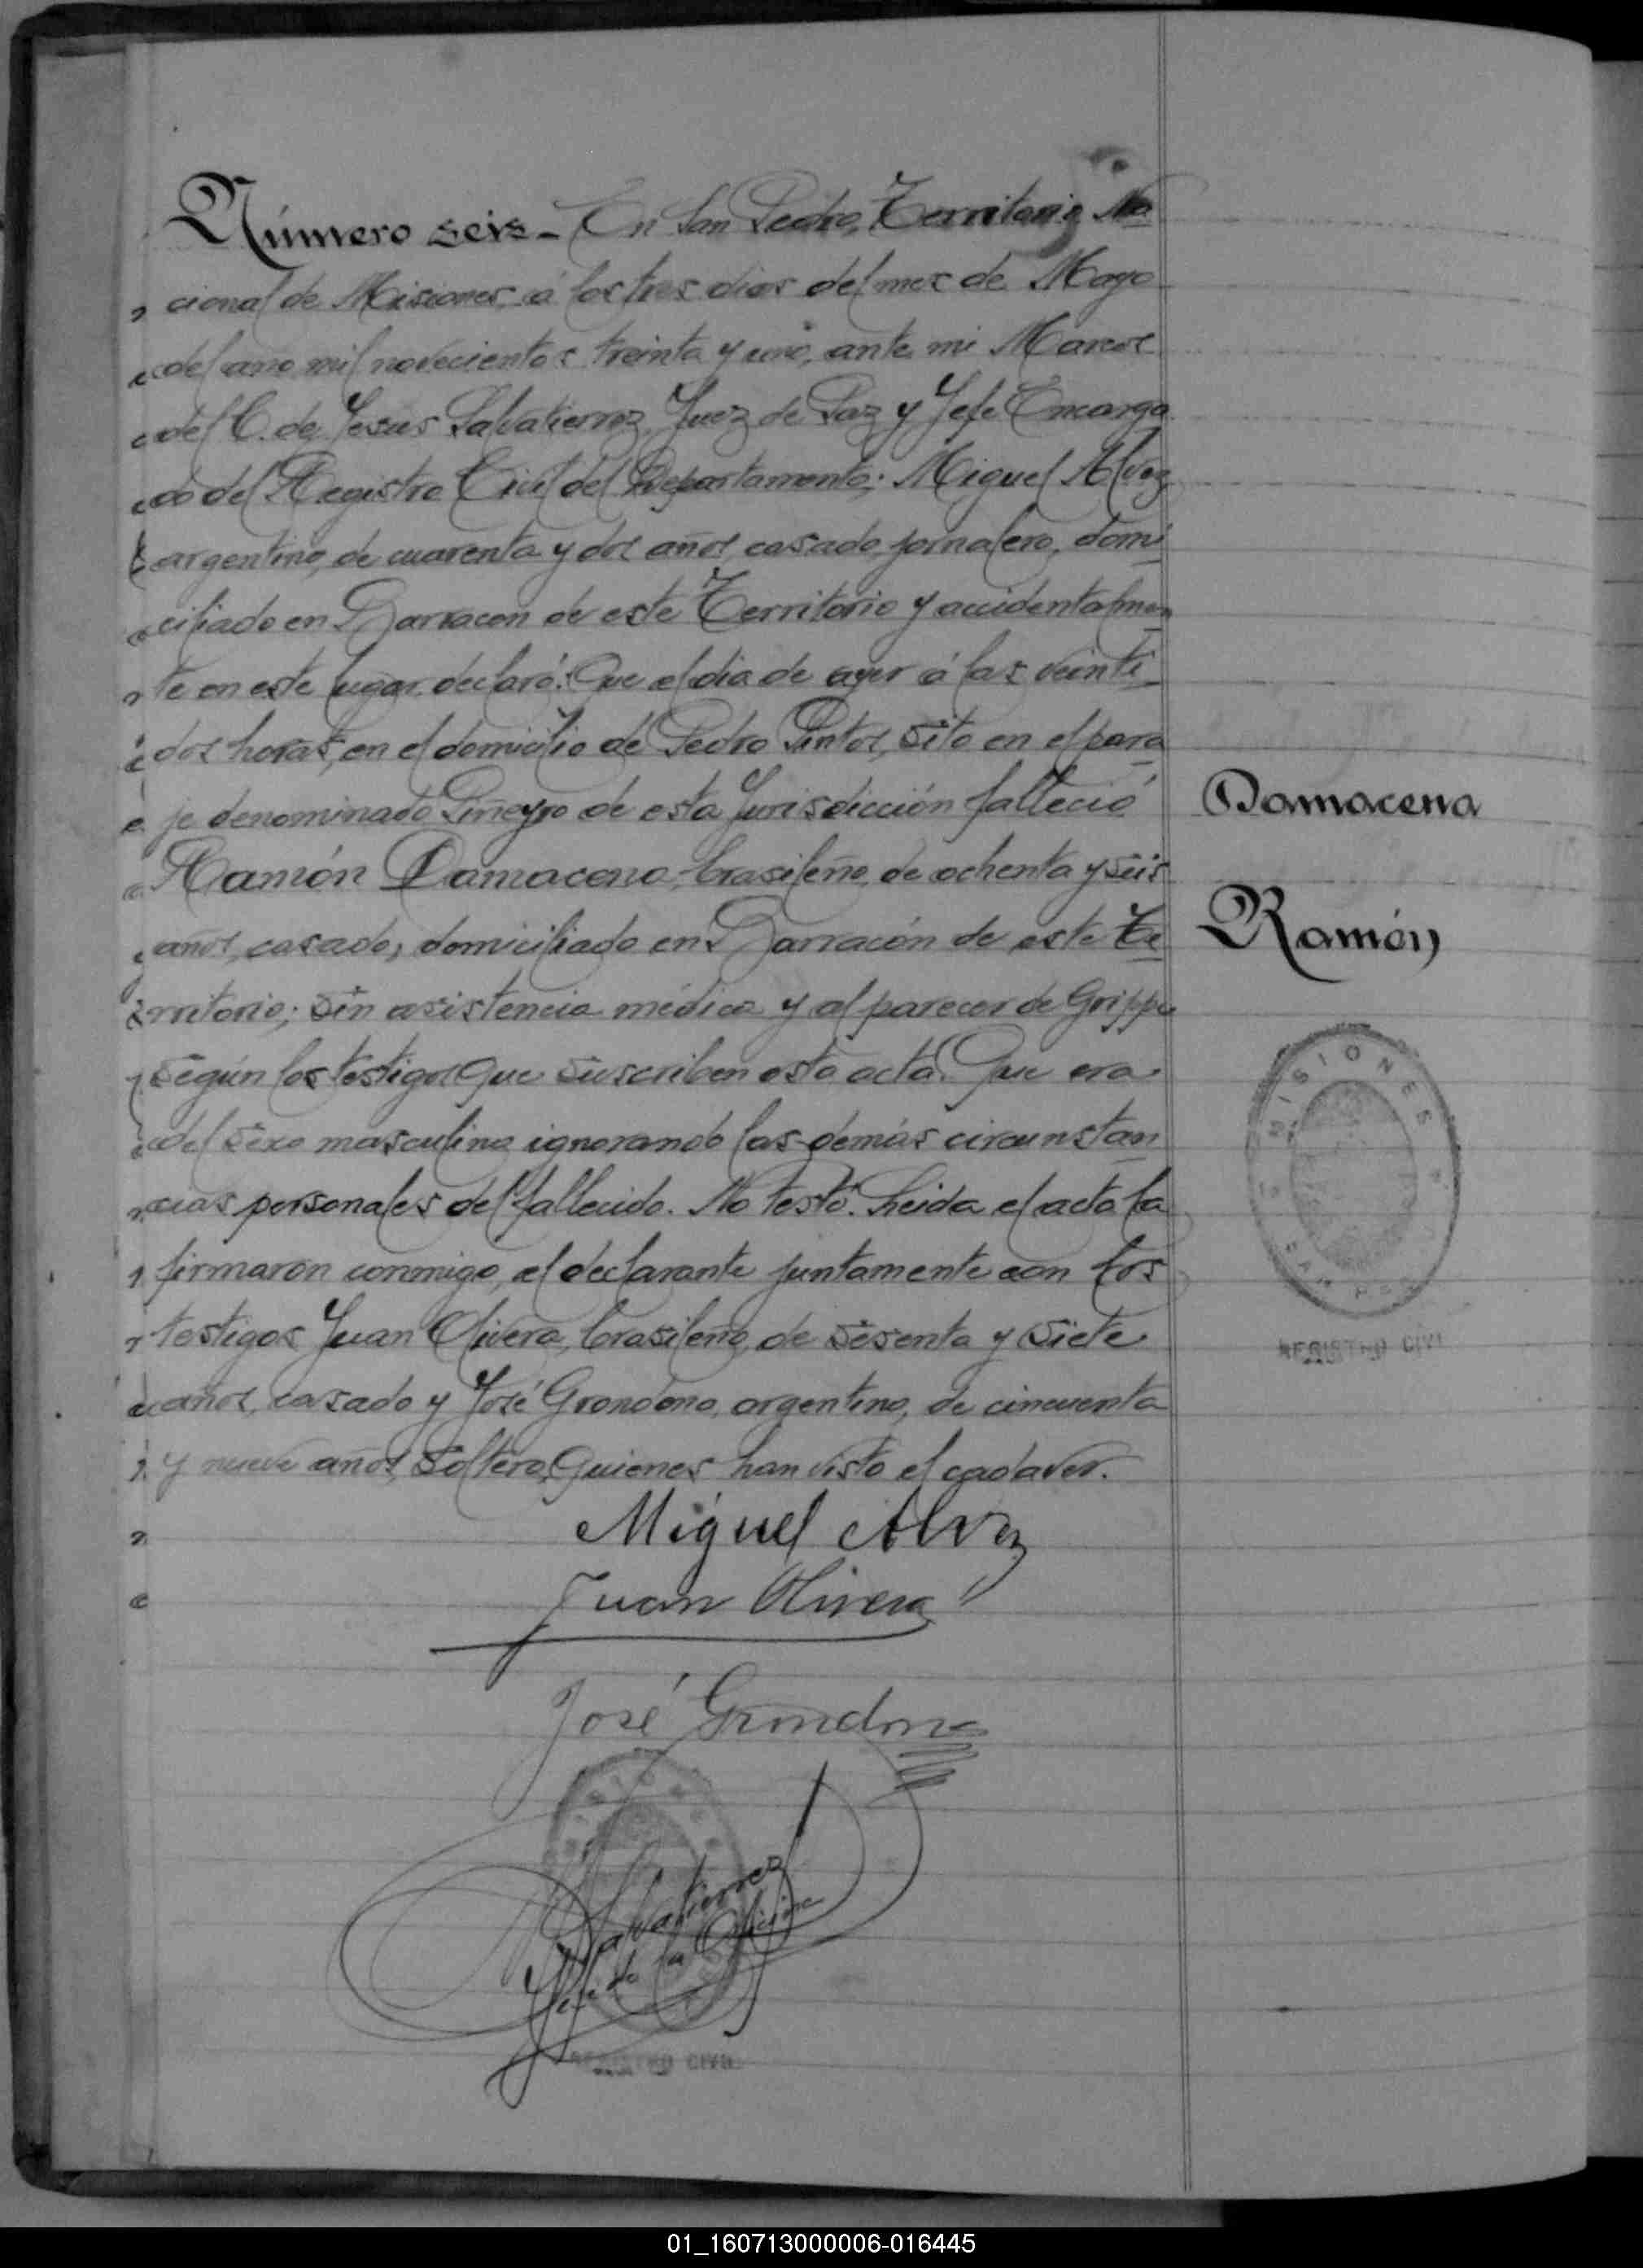 Número seis - En San Pedro, Territorio Na
cional de Misiones, á los tres dias del mes de Mayo
del año mil novecientos treinta y uno, ante mi Marcos
del C. de Jesus Salvatierrez, Juez de Paz y Jefe Encarga
do del Registro Civil del Departamento; Miguel Alvez
argentino, de cuarenta y dos años, casado, jornalero, domi
ciliado en Barracon de este Territorio y accidentalmen
te en este lugar, declaró: Que el dia de ayer á las veinti
dos horas, en el domicilio de Pedro Pintos, sito en el para
je denominado Piñeyro de esta Jurisdicción falleció
Damacena
Ramón Damaceno, brasileño, de ochenta y seis
años, casado, domiciliado en Barracón de este Te
Ramón
rritorio; sin asistencia médica y al parecer de Grippe
según los testigos que suscriben esta acta. Que era
del sexo masculino ignorando las demás circunstan
cias personales del fallecido. No testó. Leida el acta la
firmaron conmigo, el declarante juntamente con los
testigos Juan Olivera, brasileño, de sesenta y siete
años, casado y José Grondona, argentino, de cincuenta
y nueve años, soltero, quienes han visto el cadaver.
MISIONES
REGISTRO CIVIL
Miguel Alvez
Juan Olivera
José Grondona
Salvatierrez
Jefe de la Oficina
REGISTRO CIVIL
01_160713000006-016445